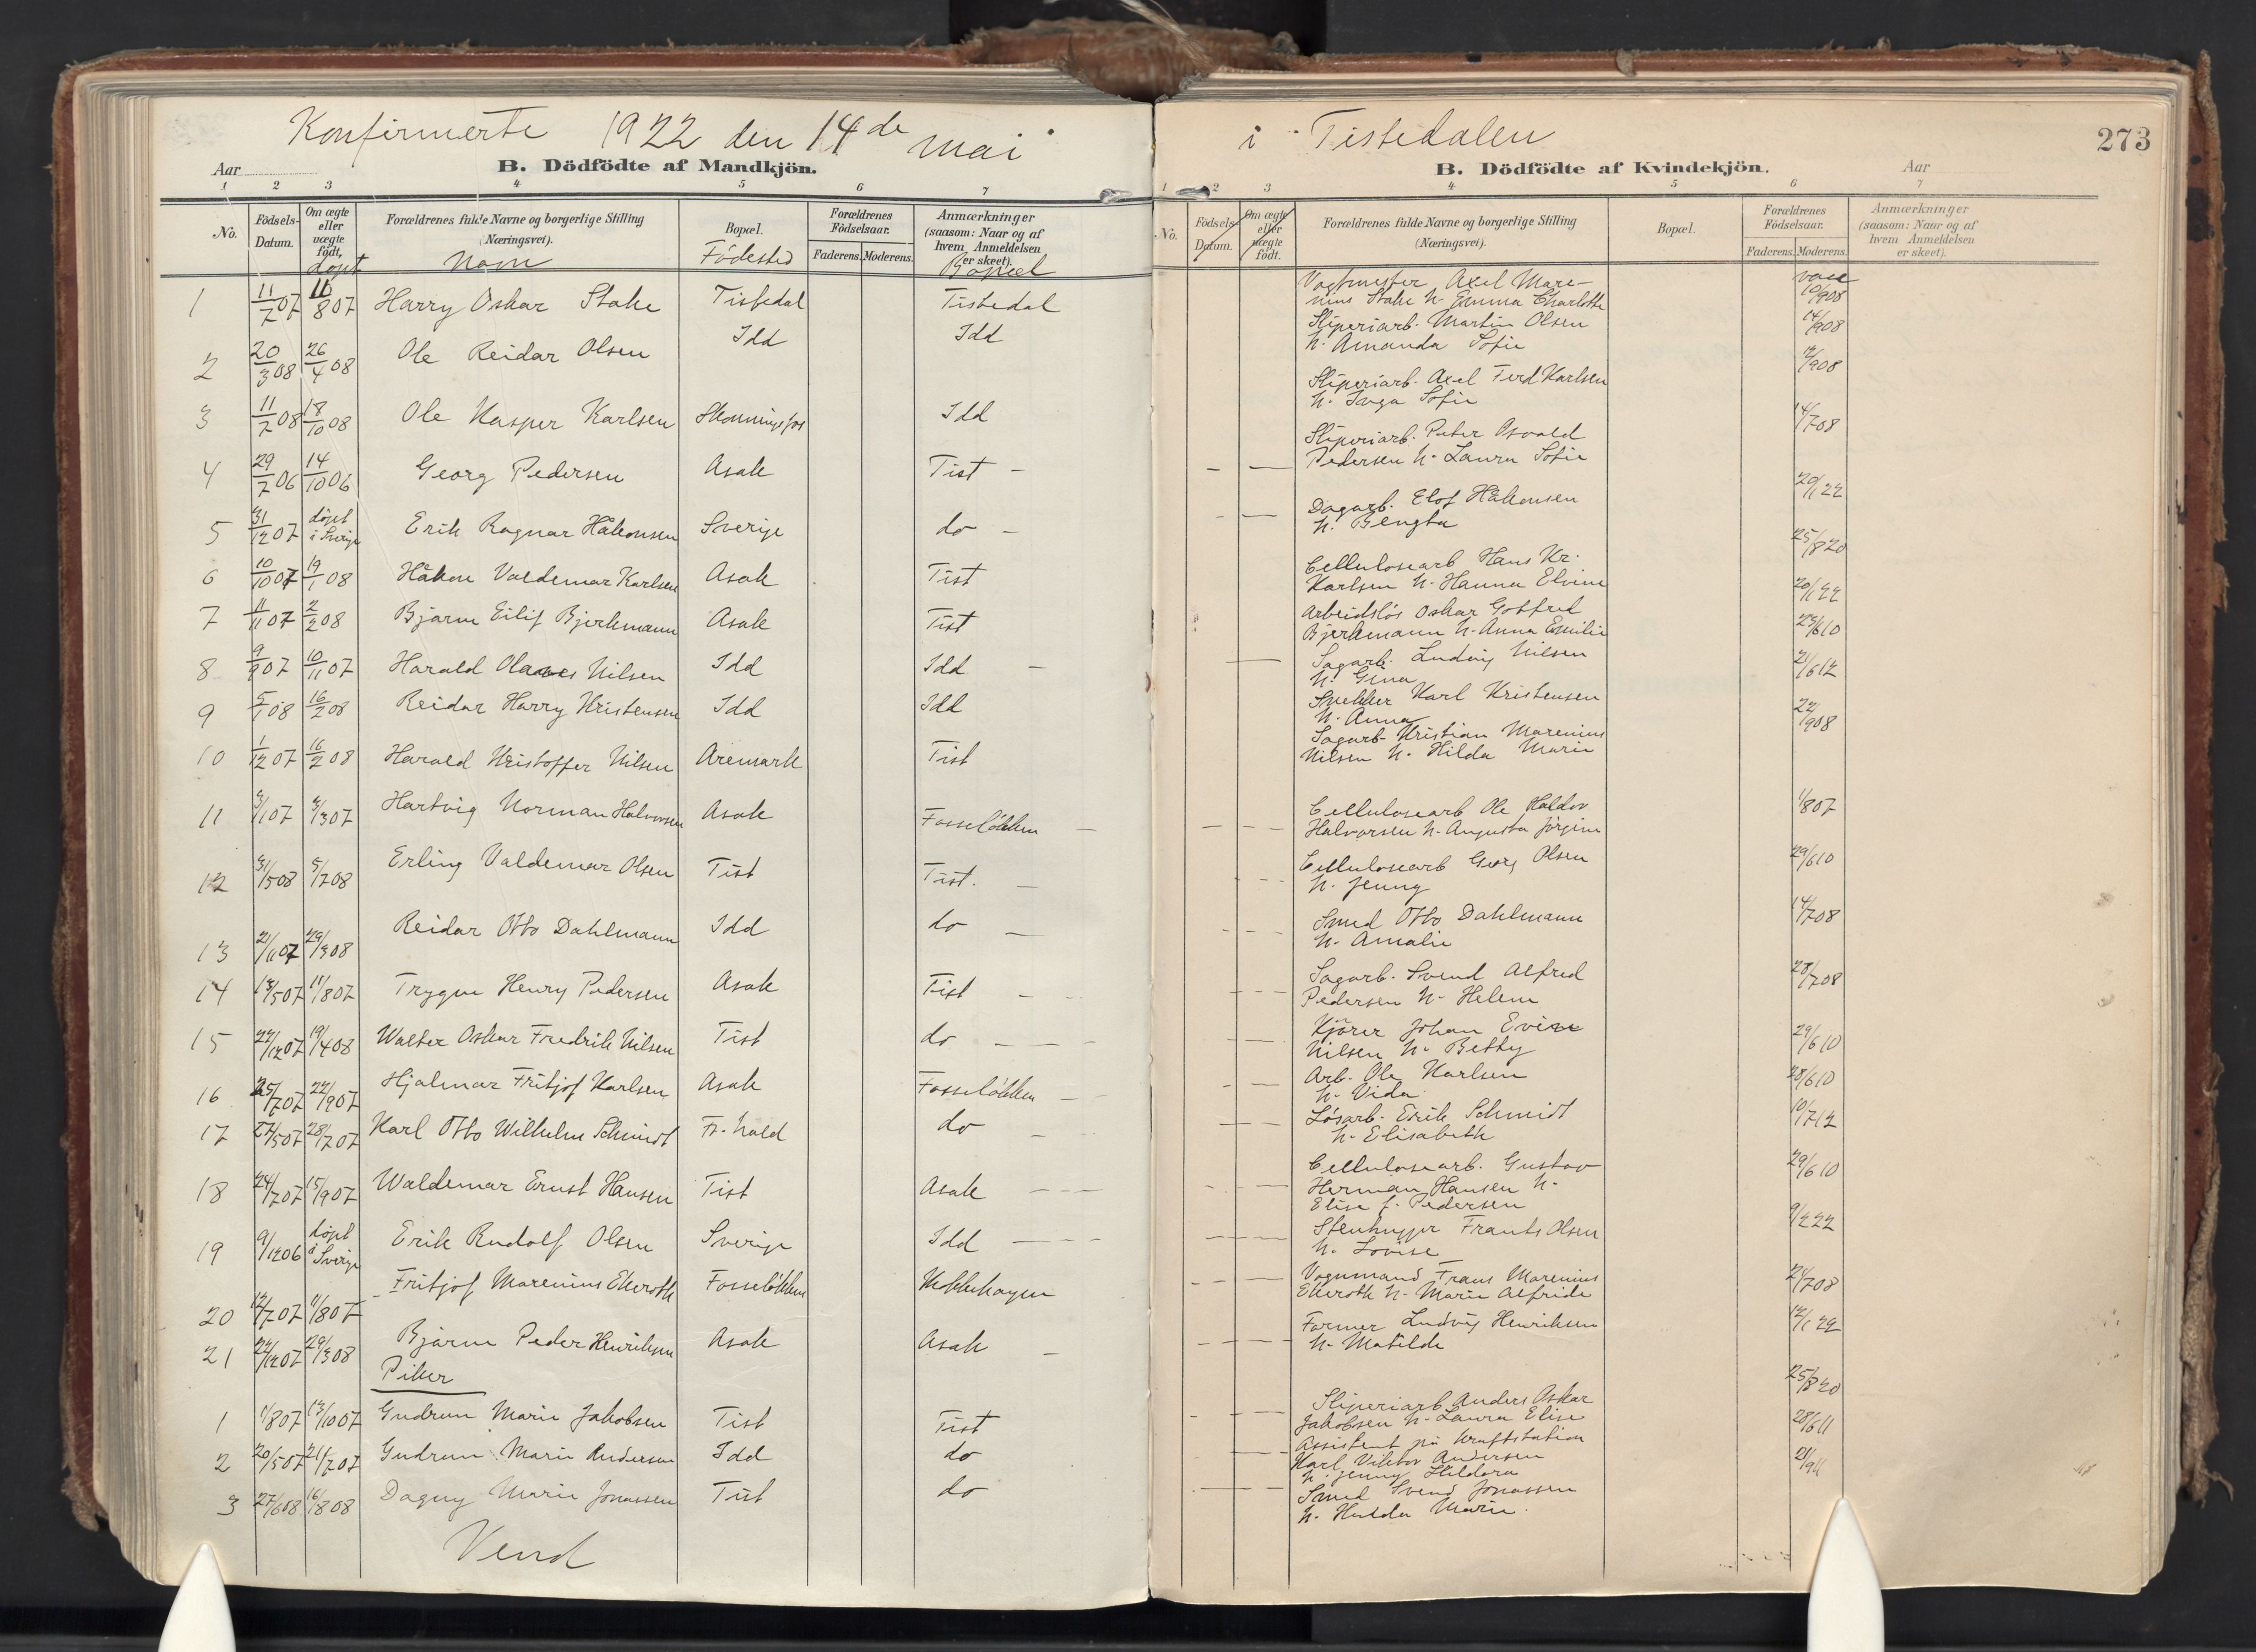 Konfirmerte 1922 den 14de mai i Tistedalen
273
Aar B. Dödfödte af Mandkjön.
1 2 3 4 5 6 7
No. Födsels-Datum. Om ægte eller uægte födt, Forældrenes fulde Navne og borgerlige Stilling (Næringsvei). Bopæl. Forældrenes Födselsaar. Faderens. Moderens. Anmærkninger (saasom: Naar og af hvem Anmeldelsen er skeet).
döpt Navn Födested Bopæl
B. Dödfödte af Kvindekjön. Aar
1 2 3 4 5 6 7
No. Födsels-Datum. Om ægte eller uægte födt. Forældrenes fulde Navne og borgerlige Stilling (Næringsvei). Bopæl. Forældrenes Födselsaar. Faderens. Moderens. Anmærkninger (saasom: Naar og af hvem Anmeldelsen er skeet).
vacc
1 11/7 07 11/8 07 Harry Oskar Stake Tistedal Tistedal
Vagtmester Axel Mare-
nius Stake h. Emma Charlotte 10/908
2 20/3 08 26/4 08 Ole Reidar Olsen Idd Idd
Sliperiarb. Martin Olsen
h. Amanda Sofie 14/908
3 11/7 08 18/10 08 Ole Kasper Karlsen Skonningsfos Idd
Sliperiarb. Axel Ferd Karlsen
h. Inga Sofie 12/908
4 29/7 06 14/10 06 Georg Pedersen Asak Tist -
Sliperiarb. Peter Osvald
Pedersen h. Laura Sofie 14/708
5 31/12 07 döpt i Sverige Erik Ragnar Håkonsen Sverige do -
Dagarb. Elof Håkonsen
h. Bengta 20/1 22
6 10/10 07 19/1 08 Håkon Valdemar Karlsen Asak Tist
Cellulosearb Hans Kr.
Karlsen h. Hanna Elvine 25/820
7 11/11 07 2/2 08 Bjarne Eilif Bjerkmann Asak Tist
Arbeidslös Oskar Gotfred
Bjerkmann h. Anna Emilie 20/1 22
8 9/9 07 10/11 07 Harald Olaves Nilsen Idd Idd -
Sagarb. Ludvig Nilsen
h. Gina 23/610
9 5/1 08 16/2 08 Reidar Harry Kristensen Idd Idd
Snekker Karl Kristensen
h. Anna 21/612
10 1/12 07 16/2 08 Harald Kristoffer Nilsen Aremark Tist
Sagarb. Kristian Marenius
Nilsen h. Hilda Marie 22/908
11 3/107 4/307 Hartvig Norman Halvorsen Asak Fosselökken -
Cellulosearb Ole Haldor
Halvorsen h. Augusta Jörgine 1/807
12 31/508 5/708 Erling Valdemar Olsen Tist Tist. -
Cellulosearb Georg Olsen
h. Jenny 29/610
13 21/1107 29/308 Reidar Otto Dahlmann Idd do -
Smed Otto Dahlmann
h. Amalie 14/708
14 13/507 11/807 Trygve Henry Pedersen Asak Tist -
Sagarb. Svend Alfred
Pedersen h. Helene 28/708
15 22/1207 19/408 Walter Oskar Fredrik Nilsen Tist do - -
Kjörer Johan Evien
Nilsen h. Betty 29/610
16 25/707 22/907 Hjalmar Fritjof Karlsen Asak Fosselökken -
Arb. Ole Karlsen
h. Vida 28/610
17 27/507 28/707 Karl Otto Wilhelm Schmidt Fr. hald do -
Lösarb. Erik Schmidt
h. Elisabeth 10/712
18 24/707 15/907 Waldemar Ernst Hansen Tist Asak - -
Cellulosearb. Gustav
Herman Hansen h.
Elise f. Pedersen 29/610
19 9/1206 döpt i Sverige Erik Rudolf Olsen Sverige Idd - - -
Stenhugger Frants Olsen
h. Lovise 9/222
20 12/707 11/807 Fritjof Marenius Ekeroth Fosselökken Klokkehagen
Vognmand Frans Marenius
Ekeroth h. Marie Alfride 24/708
21 22/1207 29/308 Bjarne Peder Henriksen Asak Asak -
Former Ludvig Henriksen
h. Matilde 12/1 22
Piker
1 1/807 13/1007 Gudrun Marie Jakobsen Tist Tist
Sliperiarb Anders Oskar
Jakobsen h. Laura Elise 25/820
2 20/507 21/707 Gudrun Marie Andersen Idd do
Assistent på kraftstation
Karl Viktor Andersen
h. Jenny Hildora 28/611
3 27/608 16/808 Dagny Marie Jonassen Tist do
Smed Svend Jonassen
h. Hulda Marie. 21/911
Vend